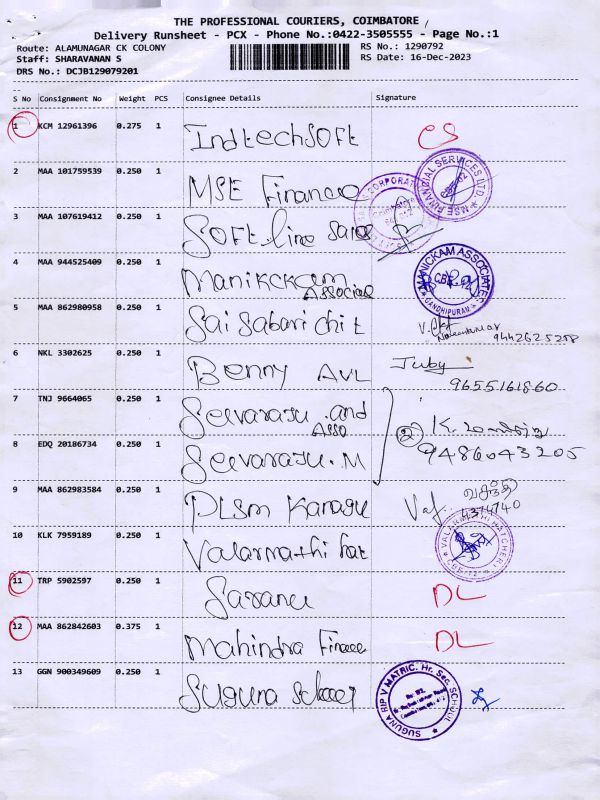 THE PROFESSIONAL COURIERS, COIMBATORE
Delivery Runsheet - PCX - Phone No.:0422-3505555 - Page No.:1
Route: ALAMUNAGAR CK COLONY RS No.: 1290792
Staff: SHARAVANAN S RS Date: 16-Dec-2023
DRS No.: DCJB129079201
S No Consignment No Weight PCS Consignee Details Signature
1 KCM 12961396 0.275 1 IndtechSoft CS
2 MAA 101759539 0.250 1 MSE Finance MSE FINANCIAL SERVICES LTD
3 MAA 107619412 0.250 1 Softline Coimbatore
4 MAA 944525409 0.250 1 Manikckam MANICKAM ASSOCIATES
Associat CBE-12 GANDHIPURAM
5 MAA 862980958 0.250 1 Saisabari chit 9442625258
6 NKL 3302625 0.250 1 Benny AVL Juby
9655161860
7 TNJ 9664065 0.250 1 Selvaraju and K.
Asso 2
8 EDQ 20186734 0.250 1 Selvaraju.M 9486043205
9 MAA 862983584 0.250 1 PLSM Kanagu வசந்தி
4374740
10 KLK 7959189 0.250 1 Valarmathi hat CBE-12
11 TRP 5902597 0.250 1 DL
12 MAA 862842603 0.375 1 Mahindra Finance DL
13 GGN 900349609 0.250 1 Suguna School SUGUNA RIP V MATRIC. Hr. Sec. SCHOOL